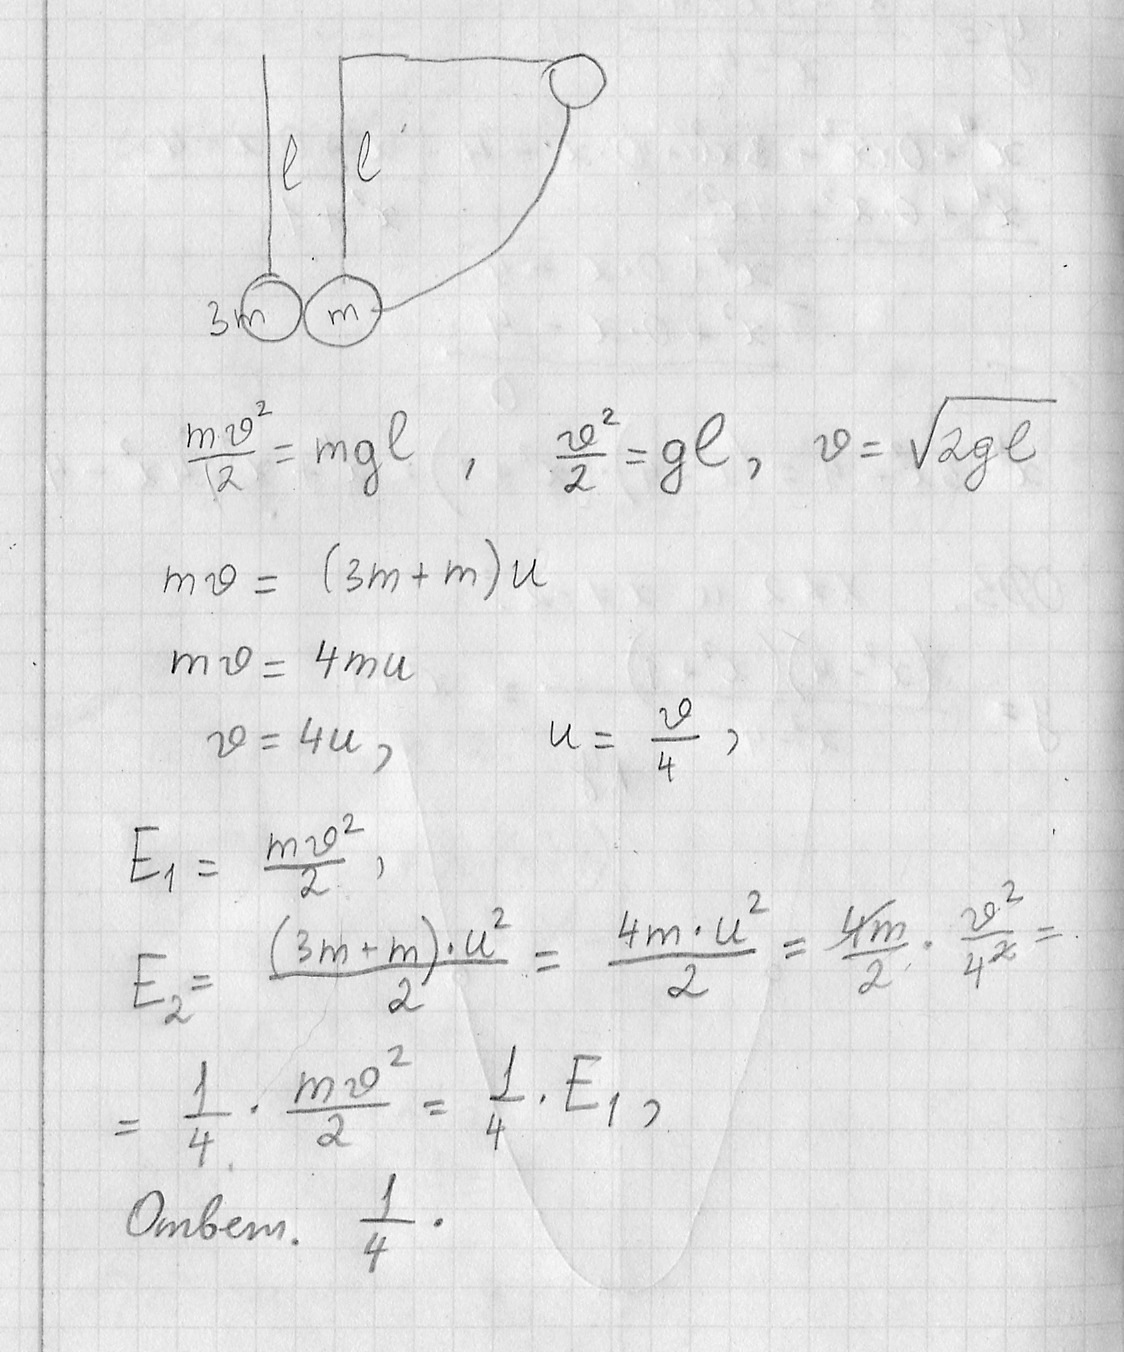 l l
3m m
mv²/2 = mgl , v²/2 = gl, v = √2gl
mv = (3m + m)u
mv = 4mu
v = 4u, u = v/4,
E₁ = mv²/2,
E₂ = (3m + m)·u²/2 = 4m·u²/2 = 4m/2 · v²/4² =
= 1/4 · mv²/2 = 1/4 · E₁,
Ответ. 1/4.